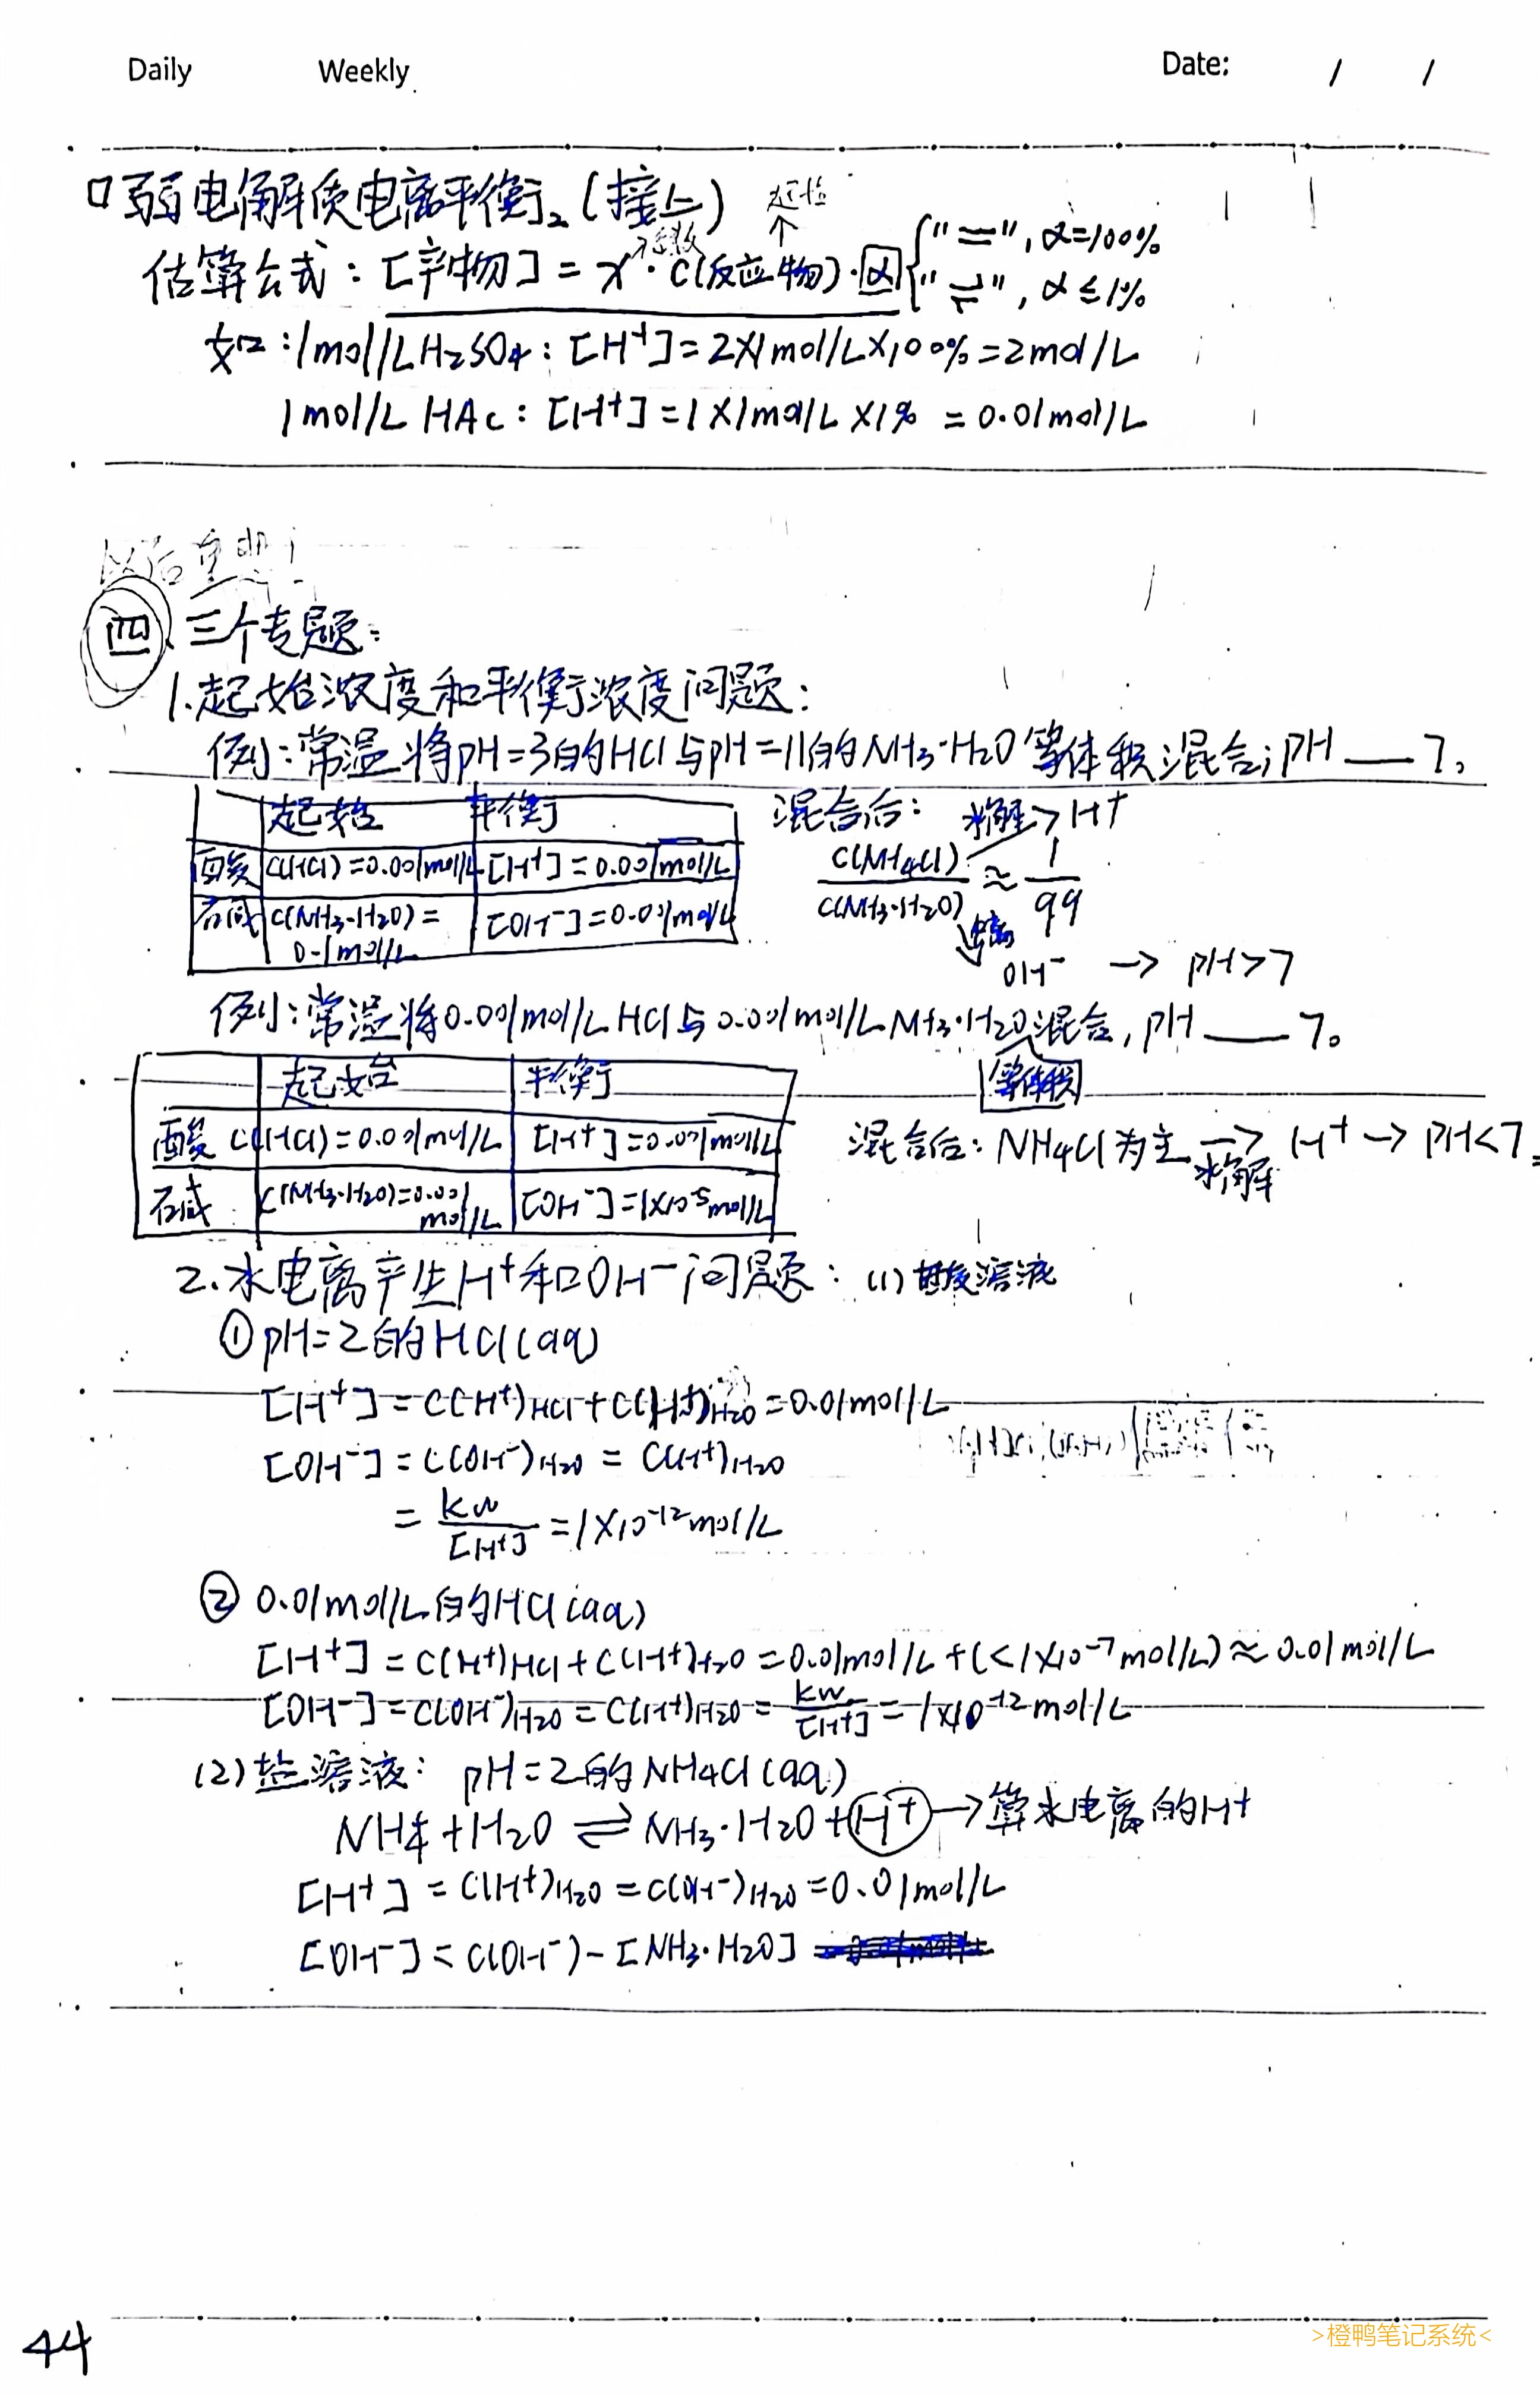 Daily Weekly Date: / /
口弱电解质电离平衡₂(接上) 起始
↑
系数
估算公式:[产物]=x·c(反应物)·α { "=",α=100%
"⇌",α≤1%
如:1mol/LH₂SO₄:[H⁺]=2×1mol/L×100%=2mol/L
1mol/L HAc:[H⁺]=1×1mol/L×1%=0.01mol/L
四、三个专题:
1.起始浓度和平衡浓度问题:
例:常温将pH=3的HCl与pH=11的NH₃·H₂O等体积混合;pH ___ 7。
起始 平衡
酸 C(HCl)=0.001mol/L [H⁺]=0.001mol/L
碱 C(NH₃·H₂O)=0.1mol/L [OH⁻]=0.001mol/L
混合后: 水解→H⁺
C(NH₄Cl)/C(NH₃·H₂O)≈1/99
电离
OH⁻ → pH>7
例:常温将0.001mol/LHCl与0.001mol/LNH₃·H₂O混合,pH ___ 7。
等体积
起始 平衡
酸 C(HCl)=0.001mol/L [H⁺]=0.001mol/L
碱 C(NH₃·H₂O)=0.001mol/L [OH⁻]=1×10⁻⁵mol/L
混合后:NH₄Cl为主 →水解 H⁺→pH<7
2.水电离产生H⁺和OH⁻问题:(1)酸溶液
①pH=2的HCl(aq)
[H⁺]=C(H⁺)HCl+C(H⁺)H₂O=0.01mol/L
[OH⁻]=C(OH⁻)H₂O=C(H⁺)H₂O
=kw/[H⁺]=1×10⁻¹²mol/L
②0.01mol/L的HCl(aq)
[H⁺]=C(H⁺)HCl+C(H⁺)H₂O=0.01mol/L+(<1×10⁻⁷mol/L)≈0.01mol/L
[OH⁻]=C(OH⁻)H₂O=C(H⁺)H₂O=kw/[H⁺]=1×10⁻¹²mol/L
(2)盐溶液:pH=2的NH₄Cl(aq)
NH₄⁺+H₂O⇌NH₃·H₂O+H⁺→算水电离的H⁺
[H⁺]=C(H⁺)H₂O=C(OH⁻)H₂O=0.01mol/L
[OH⁻]=C(OH⁻)-[NH₃·H₂O]
44
>橙鸭笔记系统<